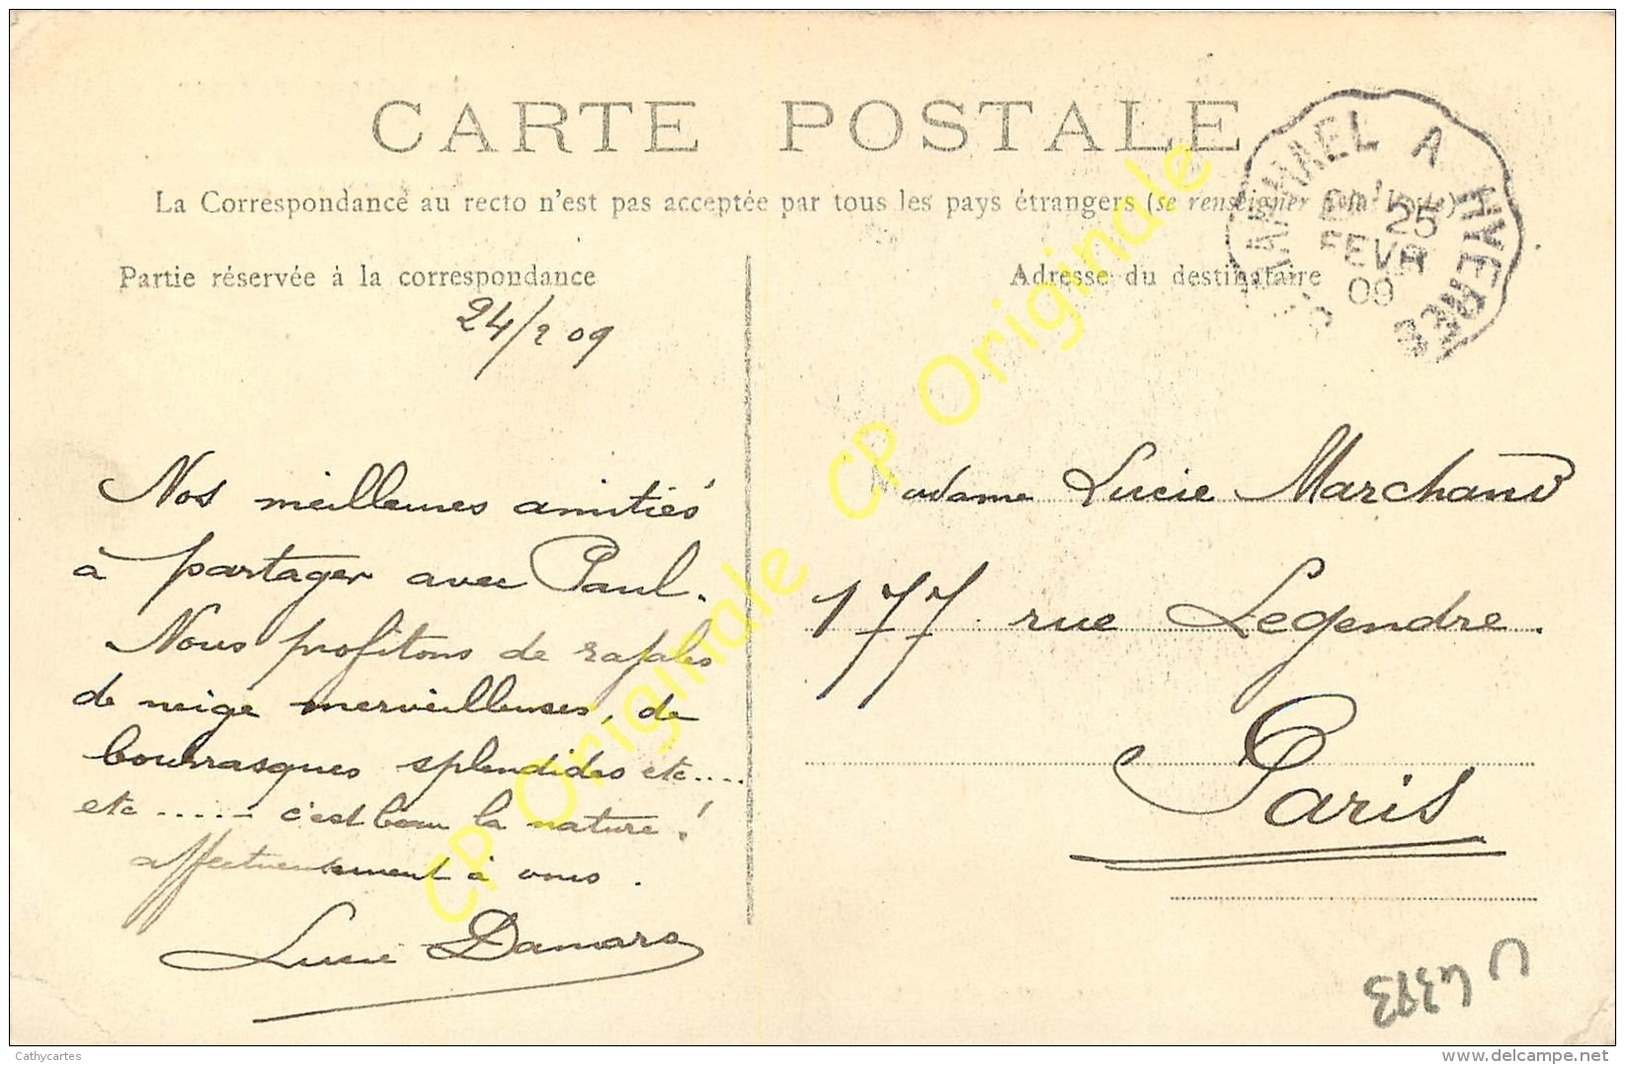 CARTE POSTALE
La Correspondance au recto n'est pas acceptée par tous les pays étrangers (se renseigner à la Poste)
Partie réservée à la correspondance
Adresse du destinataire
RAPHAEL A HYERES
25
FEVR
09
24/2 09
Nos meilleures amitiés
à partager avec Paul.
Nous profitons de rafales
de neige merveilleuses, de
bourrasques splendides etc....
etc...... c'est beau la nature!
affectueusement à vous.
Lucie Damars
adame Lucie Marchand
177 rue Legendre.
Paris
U 4393
CP Originale
CP Originale
Cathycartes
www.delcampe.net